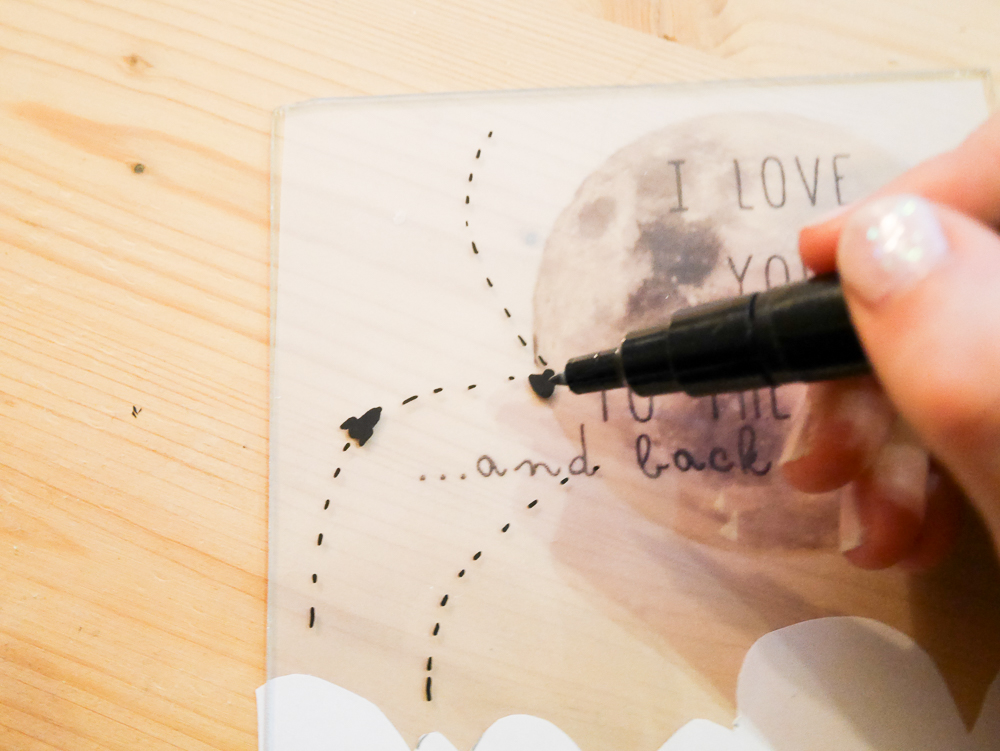 I LOVE
TO THE
...and back